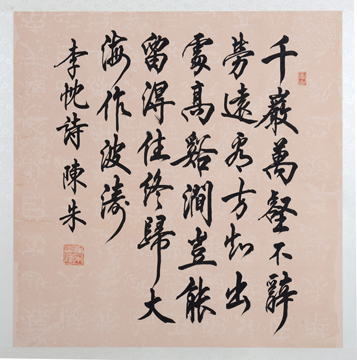 千巖萬壑不辭
勞遠看方知出
處高谿澗豈能
留得住終歸大
海作波濤
李忱詩 陳朱